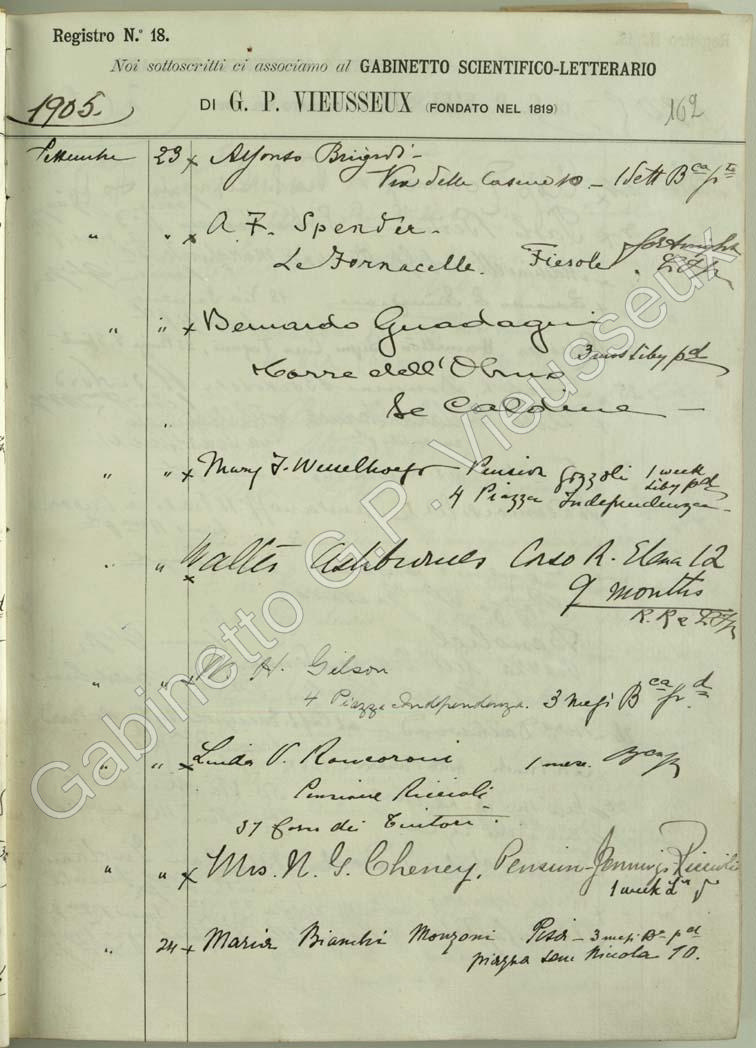 Registro N.° 18.
Noi sottoscritti ci associamo al GABINETTO SCIENTIFICO-LETTERARIO
1905. DI G. P. VIEUSSEUX (FONDATO NEL 1819) 162
Settembre 23 x Alfonso
Via delle Cascine 10 – 1 sett Bca pta
" " x A. F. Spender.
Le Fornacelle. Fiesole. fortnight
" " x Bernardo Guadagni
3 mos Liby pd
Torre dell'Olmo
Le Caldine —
" " x Mary F. Wesselhoeft Pension Gozzoli 1 week
Liby pd
4 Piazza Indipendenza —
" " x Walter Ashburner Corso R. Elena 12
9 months
R. R &
" " x M. H. Gilson
4 Piazza Independenza. 3 mesi Bca pd
" " x Linda V. Roncoroni 1 mese. Bca p
Pensione Riccioli
37 Corso dei Tintori.
" " x Mrs. N. G. Cheney, Pension Jennings-Riccioli
1 week
" 24 x Maria Bianchi Monzoni Pisa – 3 mesi Ba pd
piazza San Niccola 10.
Gabinetto G.P. Vieusseux